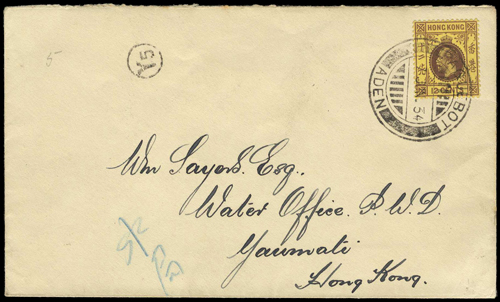 5
5A
HONG KONG
ADEN
34
BOT
Wm Sayers. Esq.,
Water Office. P.W.D.
Yaumati
Hong Kong.